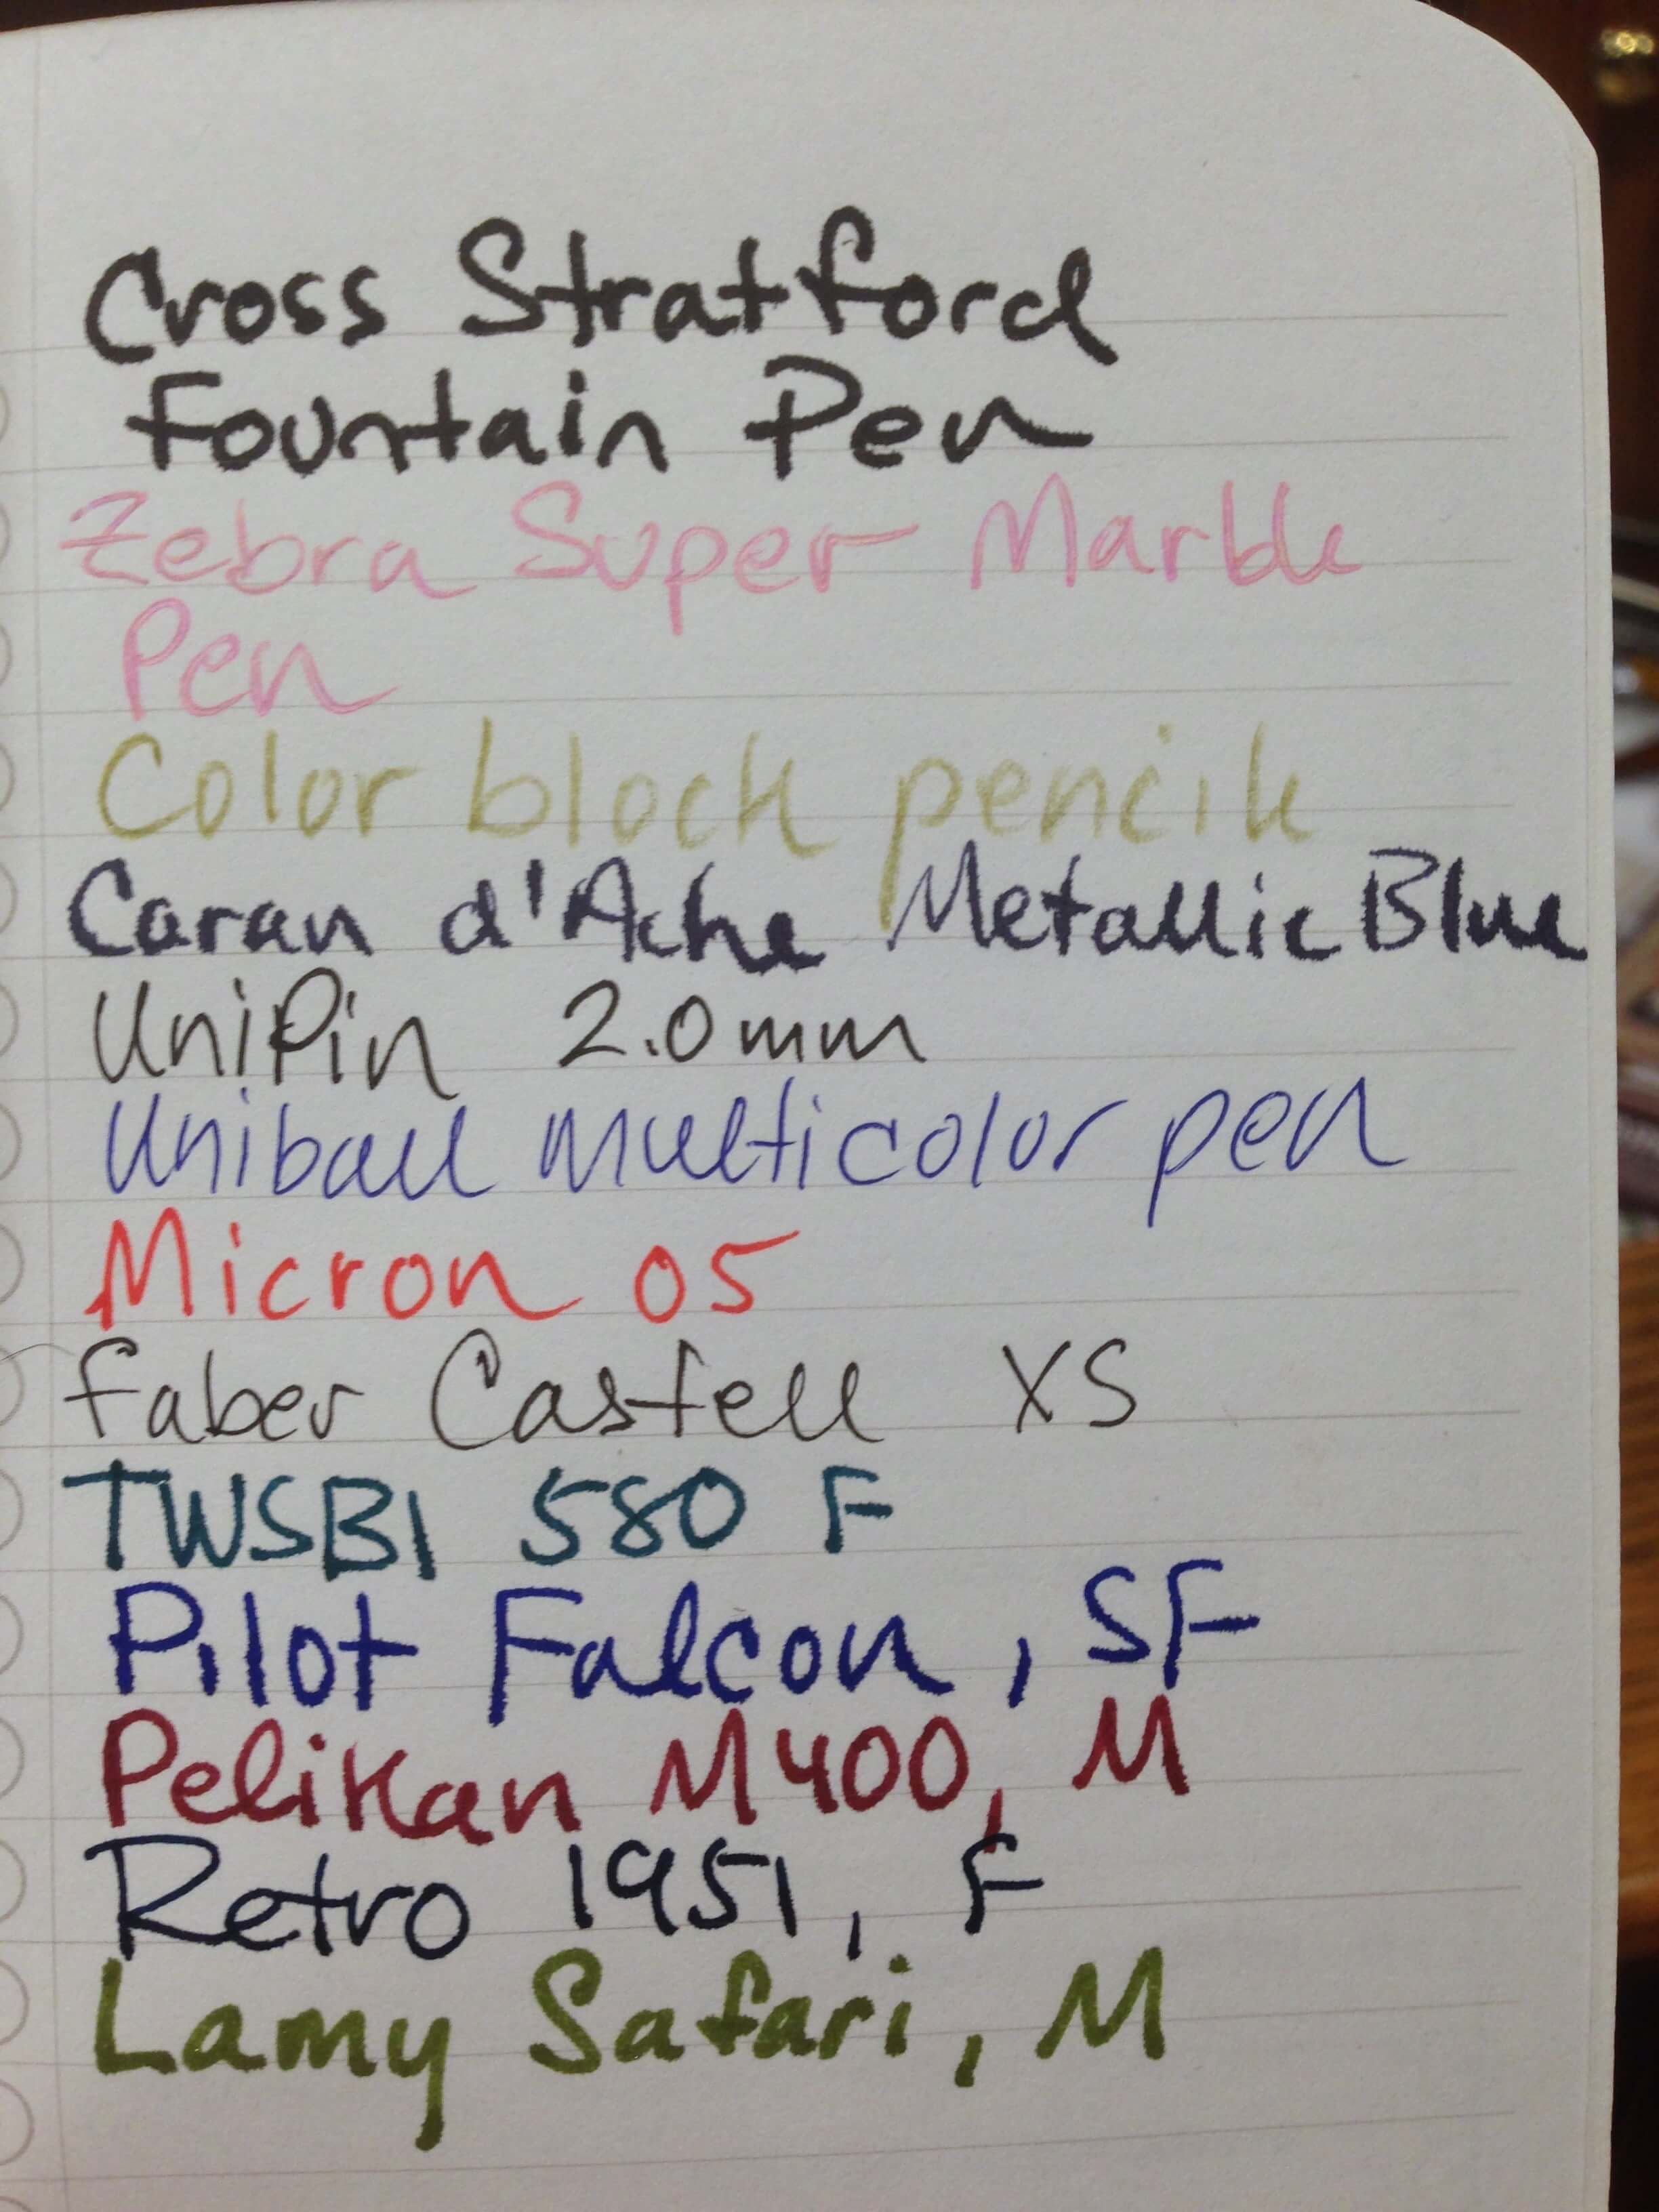 Cross Stratford
Fountain Pen
Zebra Super Marble
Pen
Color block pencil
Caran d'Ache Metallic Blue
UniPin 2.0mm
Uniball multicolor pen
Micron 05
Faber Castell XS
TWSBI 580 F
Pilot Falcon, SF
Pelikan M400, M
Retro 1951, F
Lamy Safari, M